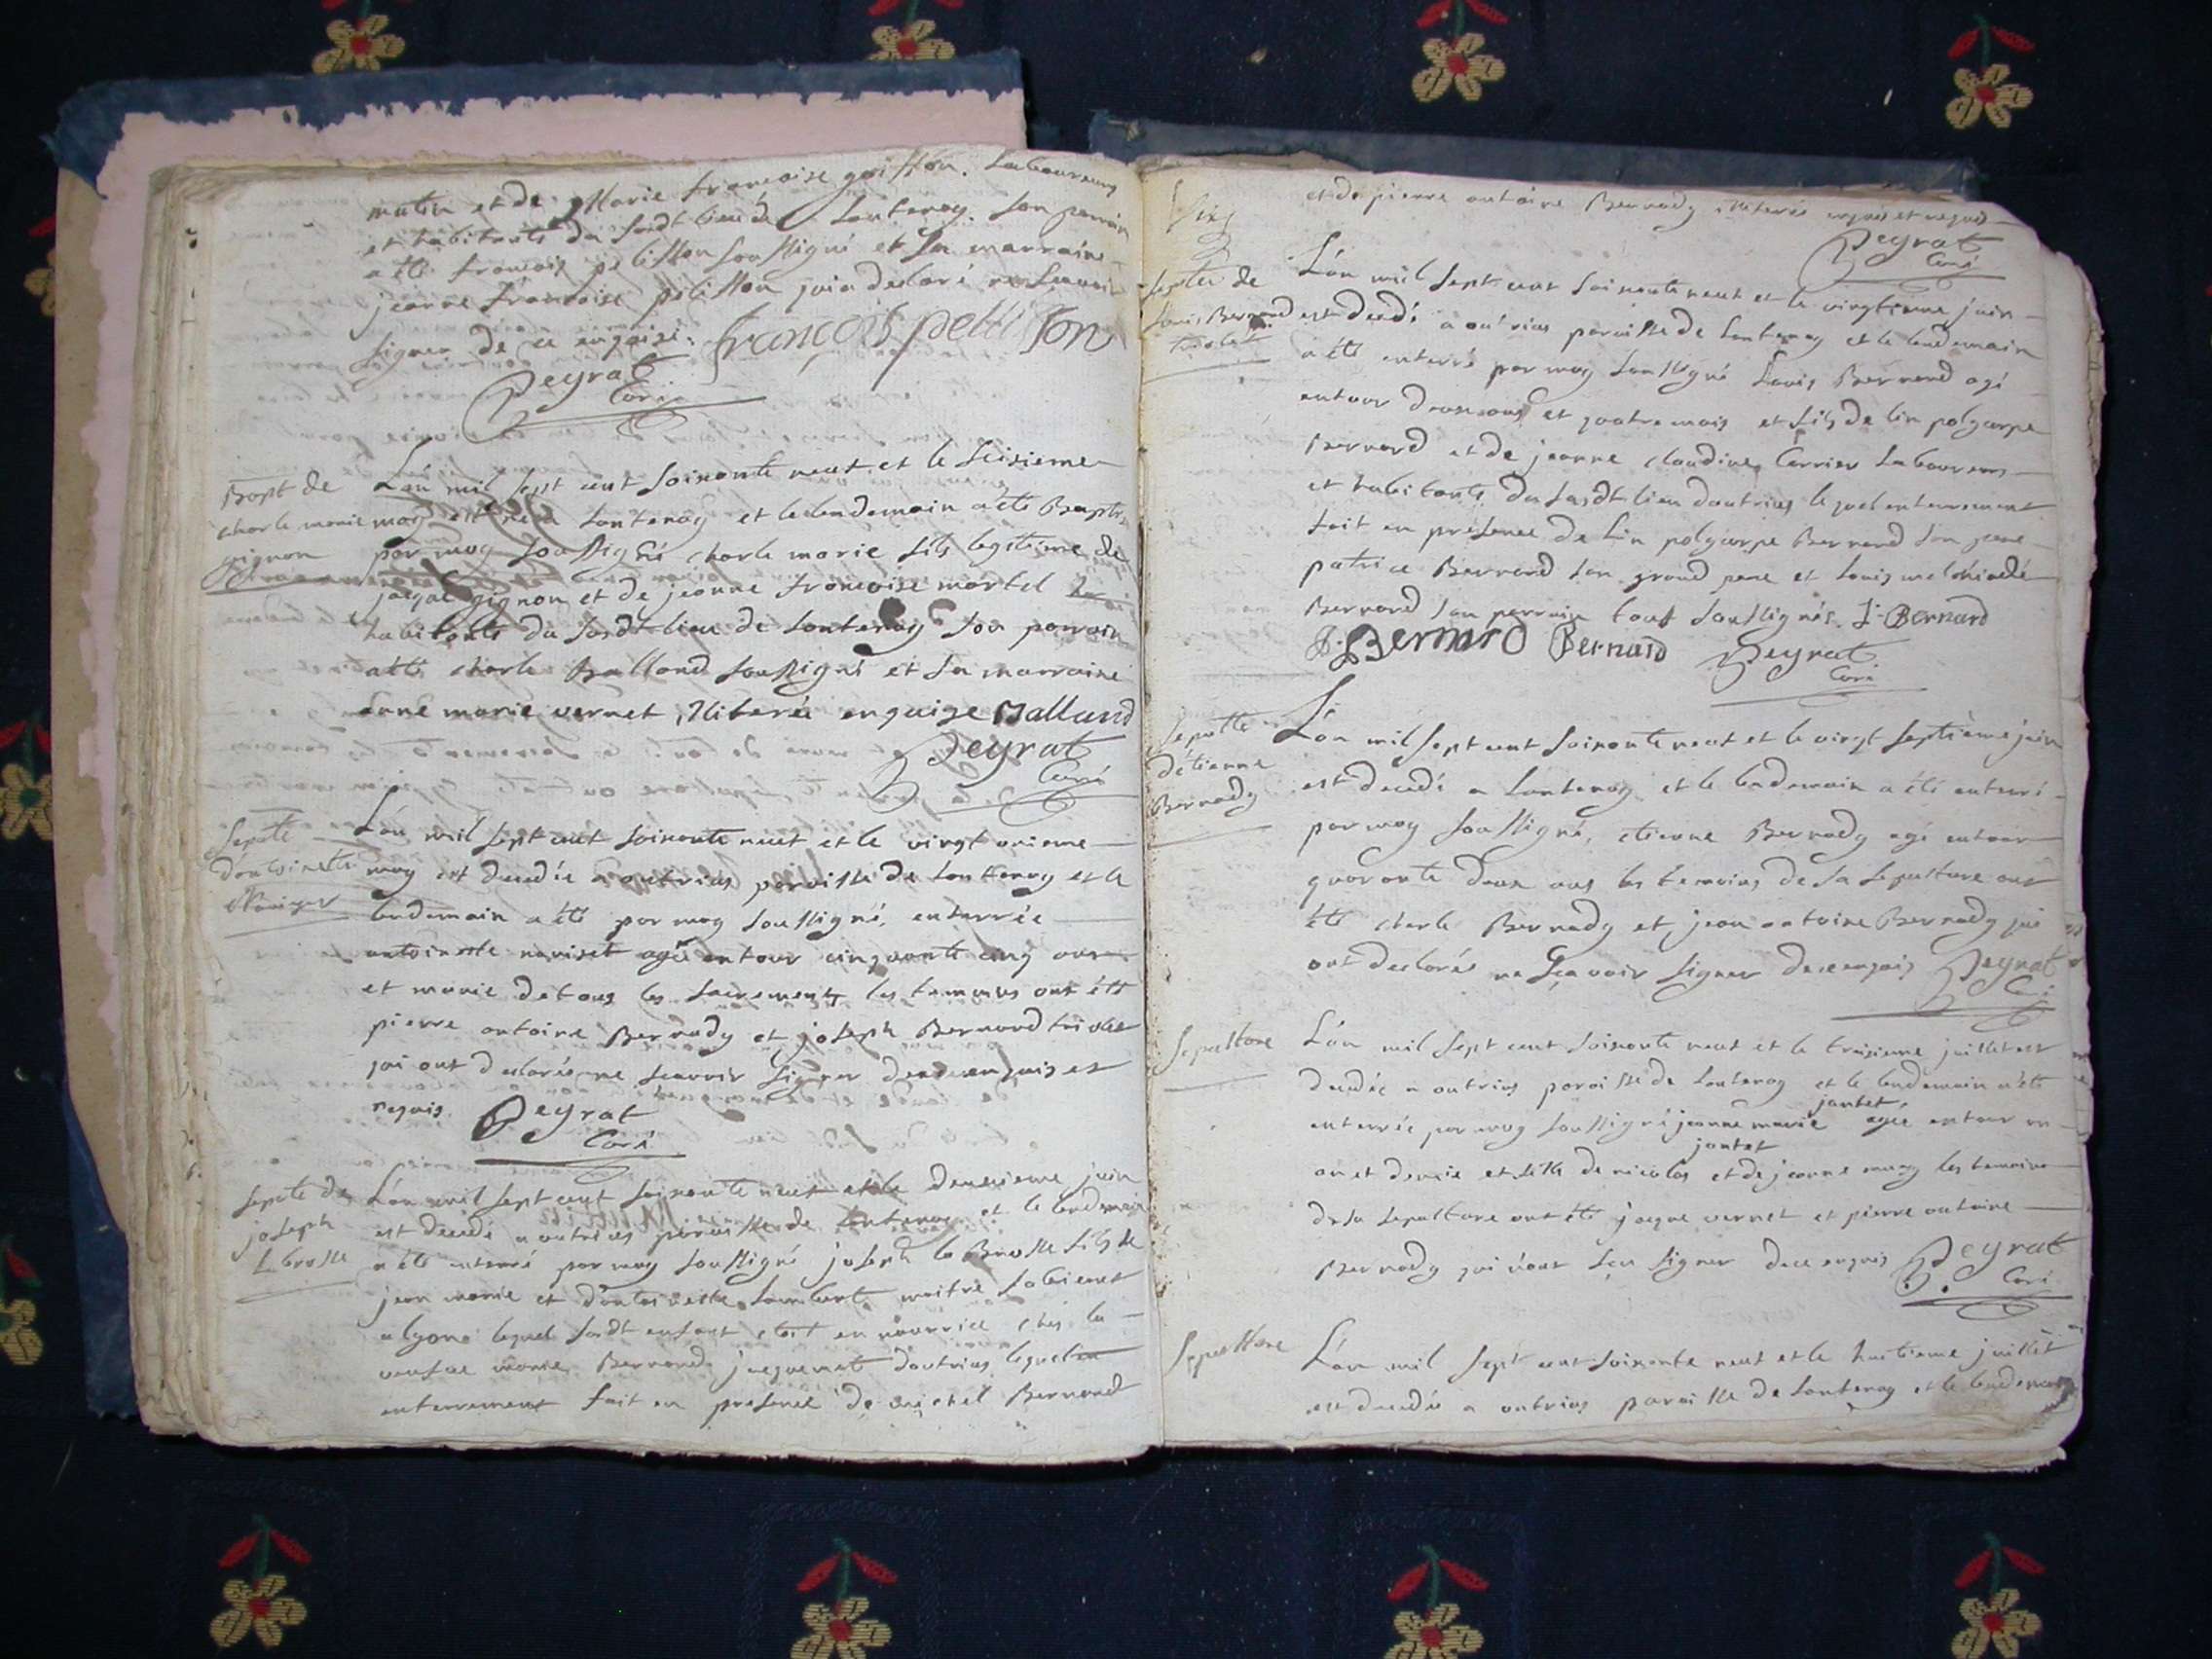 matin et de Marie francoise goisson. Laboureurs
et habitants du susdt lieu de Lantenay. Son parrain
a été francois pelisson soussigné et sa marraine
jeanne francoise pelisson qui a declaré ne scavoir
signer de ce enquise. françois pellisson
Peyrat
Curé
Bapt de
charle marie
gignon
L'an mil sept cent soixante neuf et le seisieme
may est né a Lantenay et le lendemain a été Baptisé
par moy soussigné charle marie fils legitime de
jacque gignon et de jeanne francoise martel
habitants du susdt lieu de Lantenay son parrain
a été charle Balland soussigné et sa marraine
anne marie vernet illiterée enquise Balland
Peyrat
Curé
Sepultre
d'antoinette
L'an mil sept cent soixante neuf et le vingt onieme
may est decedée a outrias paroisse de Lantenay et le
lendemain a été par moy soussigné, enterrée
antoinette agée entour cinquante cinq ans
et munie de tous les sacrements les temoins ont été
pierre antoine Bernady et joseph Bernard triolet
qui ont declarés ne scavoir signer de ce enquis et
requis Peyrat
Curé
Sepultre de
joseph
L brosse
L'an mil sept cent soixante neuf et le deuxieme juin
est decedé a outrias paroisse de Lantenay et le lendemain
a été enterré par moy soussigné joseph la Brosse fils de
jean marie et d'antoinette Lambert maitre
a lyon lequel susdt enfant etoit en nourrice chés la
veufve marie Bernard jacquemet d'outrias lequel
enterrement fait en presence de michel Bernard
Six
et de pierre antoine Bernady illiterés enquis et requis
Peyrat
Curé
Sepltre de
Louis Bernard
triolet
L'an mil sept cent soixante neuf et le vingtieme juin
est decedé a outrias paroisse de Lantenay et le lendemain
a été enterré par moy soussigné Louis Bernard agé
entour deux ans et quatre mois et fils de lin polycarpe
Bernard et de jeanne claudine Carrier Laboureurs
et habitants du susdt lieu d'outrias lequel enterrement
fait en presence de Lin polycarpe Bernard son pere
patrice Bernard son grand pere et Louis melchiade
Bernard son parrain tous soussignés. L. Bernard
P. Bernard Bernard Peyrat
Curé
Sepultre
d'étienne
Bernady
L'an mil sept cent soixante neuf et le vingt septieme juin
est decedé a Lantenay et le lendemain a été enterré
par moy soussigné, etienne Bernady agé entour
quarante deux ans les temoins de sa sepulture ont
été charle Bernady et jean antoine Bernady qui
ont declarés ne sçavoir signer de ce enquis Peyrat
Curé
Sepulture
L'an mil sept cent soixante neuf et le troisieme juillet est
decedée a outrias paroisse de Lantenay et le lendemain a été
jantet
enterrée par moy soussigné jeanne marie agée entour un
jantet
an et demie et fille de nicolas et de jeanne muny les temoins
de sa sepulture ont été jacque vernet et pierre antoine
Bernady qui n'ont sçu signer de ce enquis Peyrat
Curé
Sepulture
L'an mil sept cent soixante neuf et le huitieme juillet
est decedée a outrias paroisse de Lantenay et le lendemain